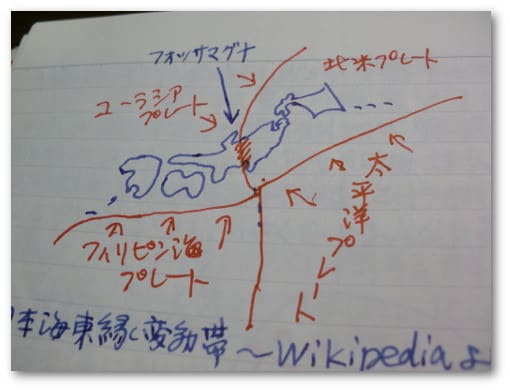 フォッサマグナ
北米プレート
ユーラシア
プレート
太平洋プレート
フィリピン海
プレート
本海東縁変動帯～Wikipediaよ